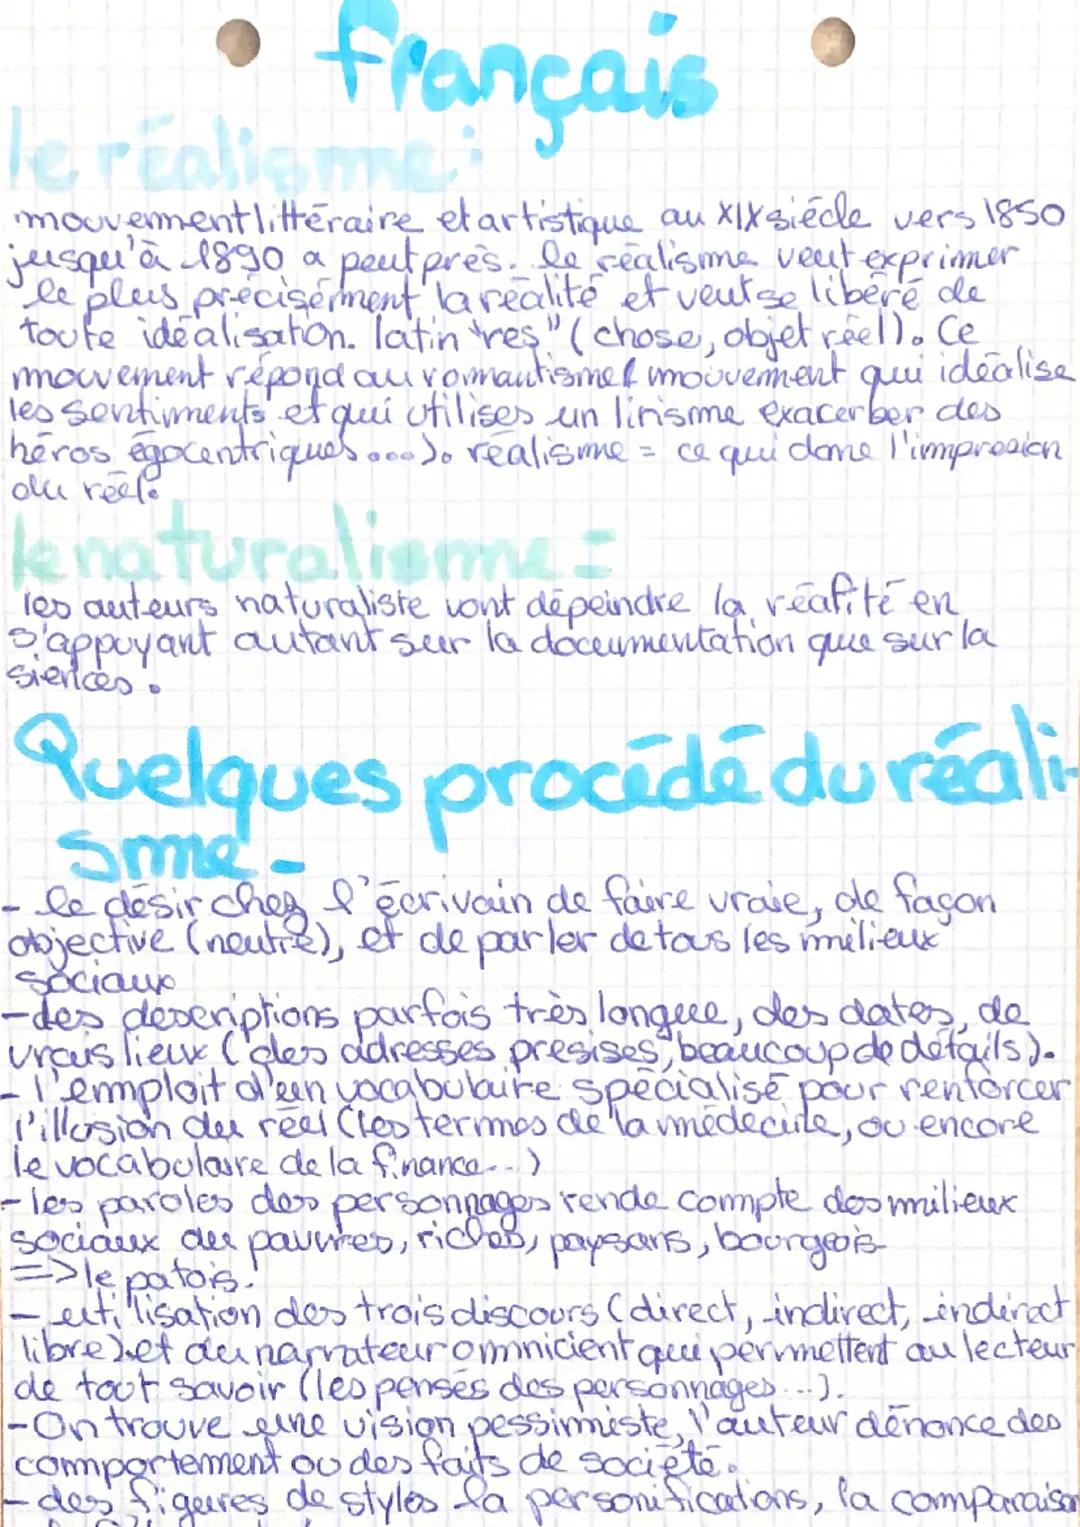 français
le réalisme:
mouvement littéraire et artistique au XIX siécle vers 1850
jusqu'à 1890 a peut près. le réalisme veut exprimer
le plus précisément la réalité et veut se libéré de
toute idéalisation. latin "res" (chose, objet réel). Ce
mouvement répond au romantisme (mouvement qui idéalise
les sentiments et qui utilises un lirisme exacerber des
héros égocentriques....). réalisme = ce qui done l'impression
du réel.
le naturalisme =
les auteurs naturaliste vont dépeindre la réalité en
s'appuyant autant sur la documentation que sur la
siences.
Quelques procédé du réali-
sme -
- le désir chez l'écrivain de faire vraie, de façon
objective (neutre), et de parler de tous les milieux
sociaux
- des descriptions parfois très longue, des dates, de
vrais lieux (des adresses présises, beaucoup de détails).
- l'emploit d'un vocabulaire spécialisé pour renforcer
l'illusion du réel (les termes de la médecine, ou encore
le vocabulaire de la finance...)
- les paroles des personnages rende compte des milieux
sociaux du pauvres, riches, paysans, bourgeois
=> le patois.
- utilisation des trois discours (direct, indirect, indirect
libre) et du narrateur omnicient qui permettent au lecteur
de tout savoir (les pensés des personnages...).
- On trouve une vision pessimiste, l'auteur dénonce des
comportement ou des faits de société.
- des figures de styles la personifications, la comparaison